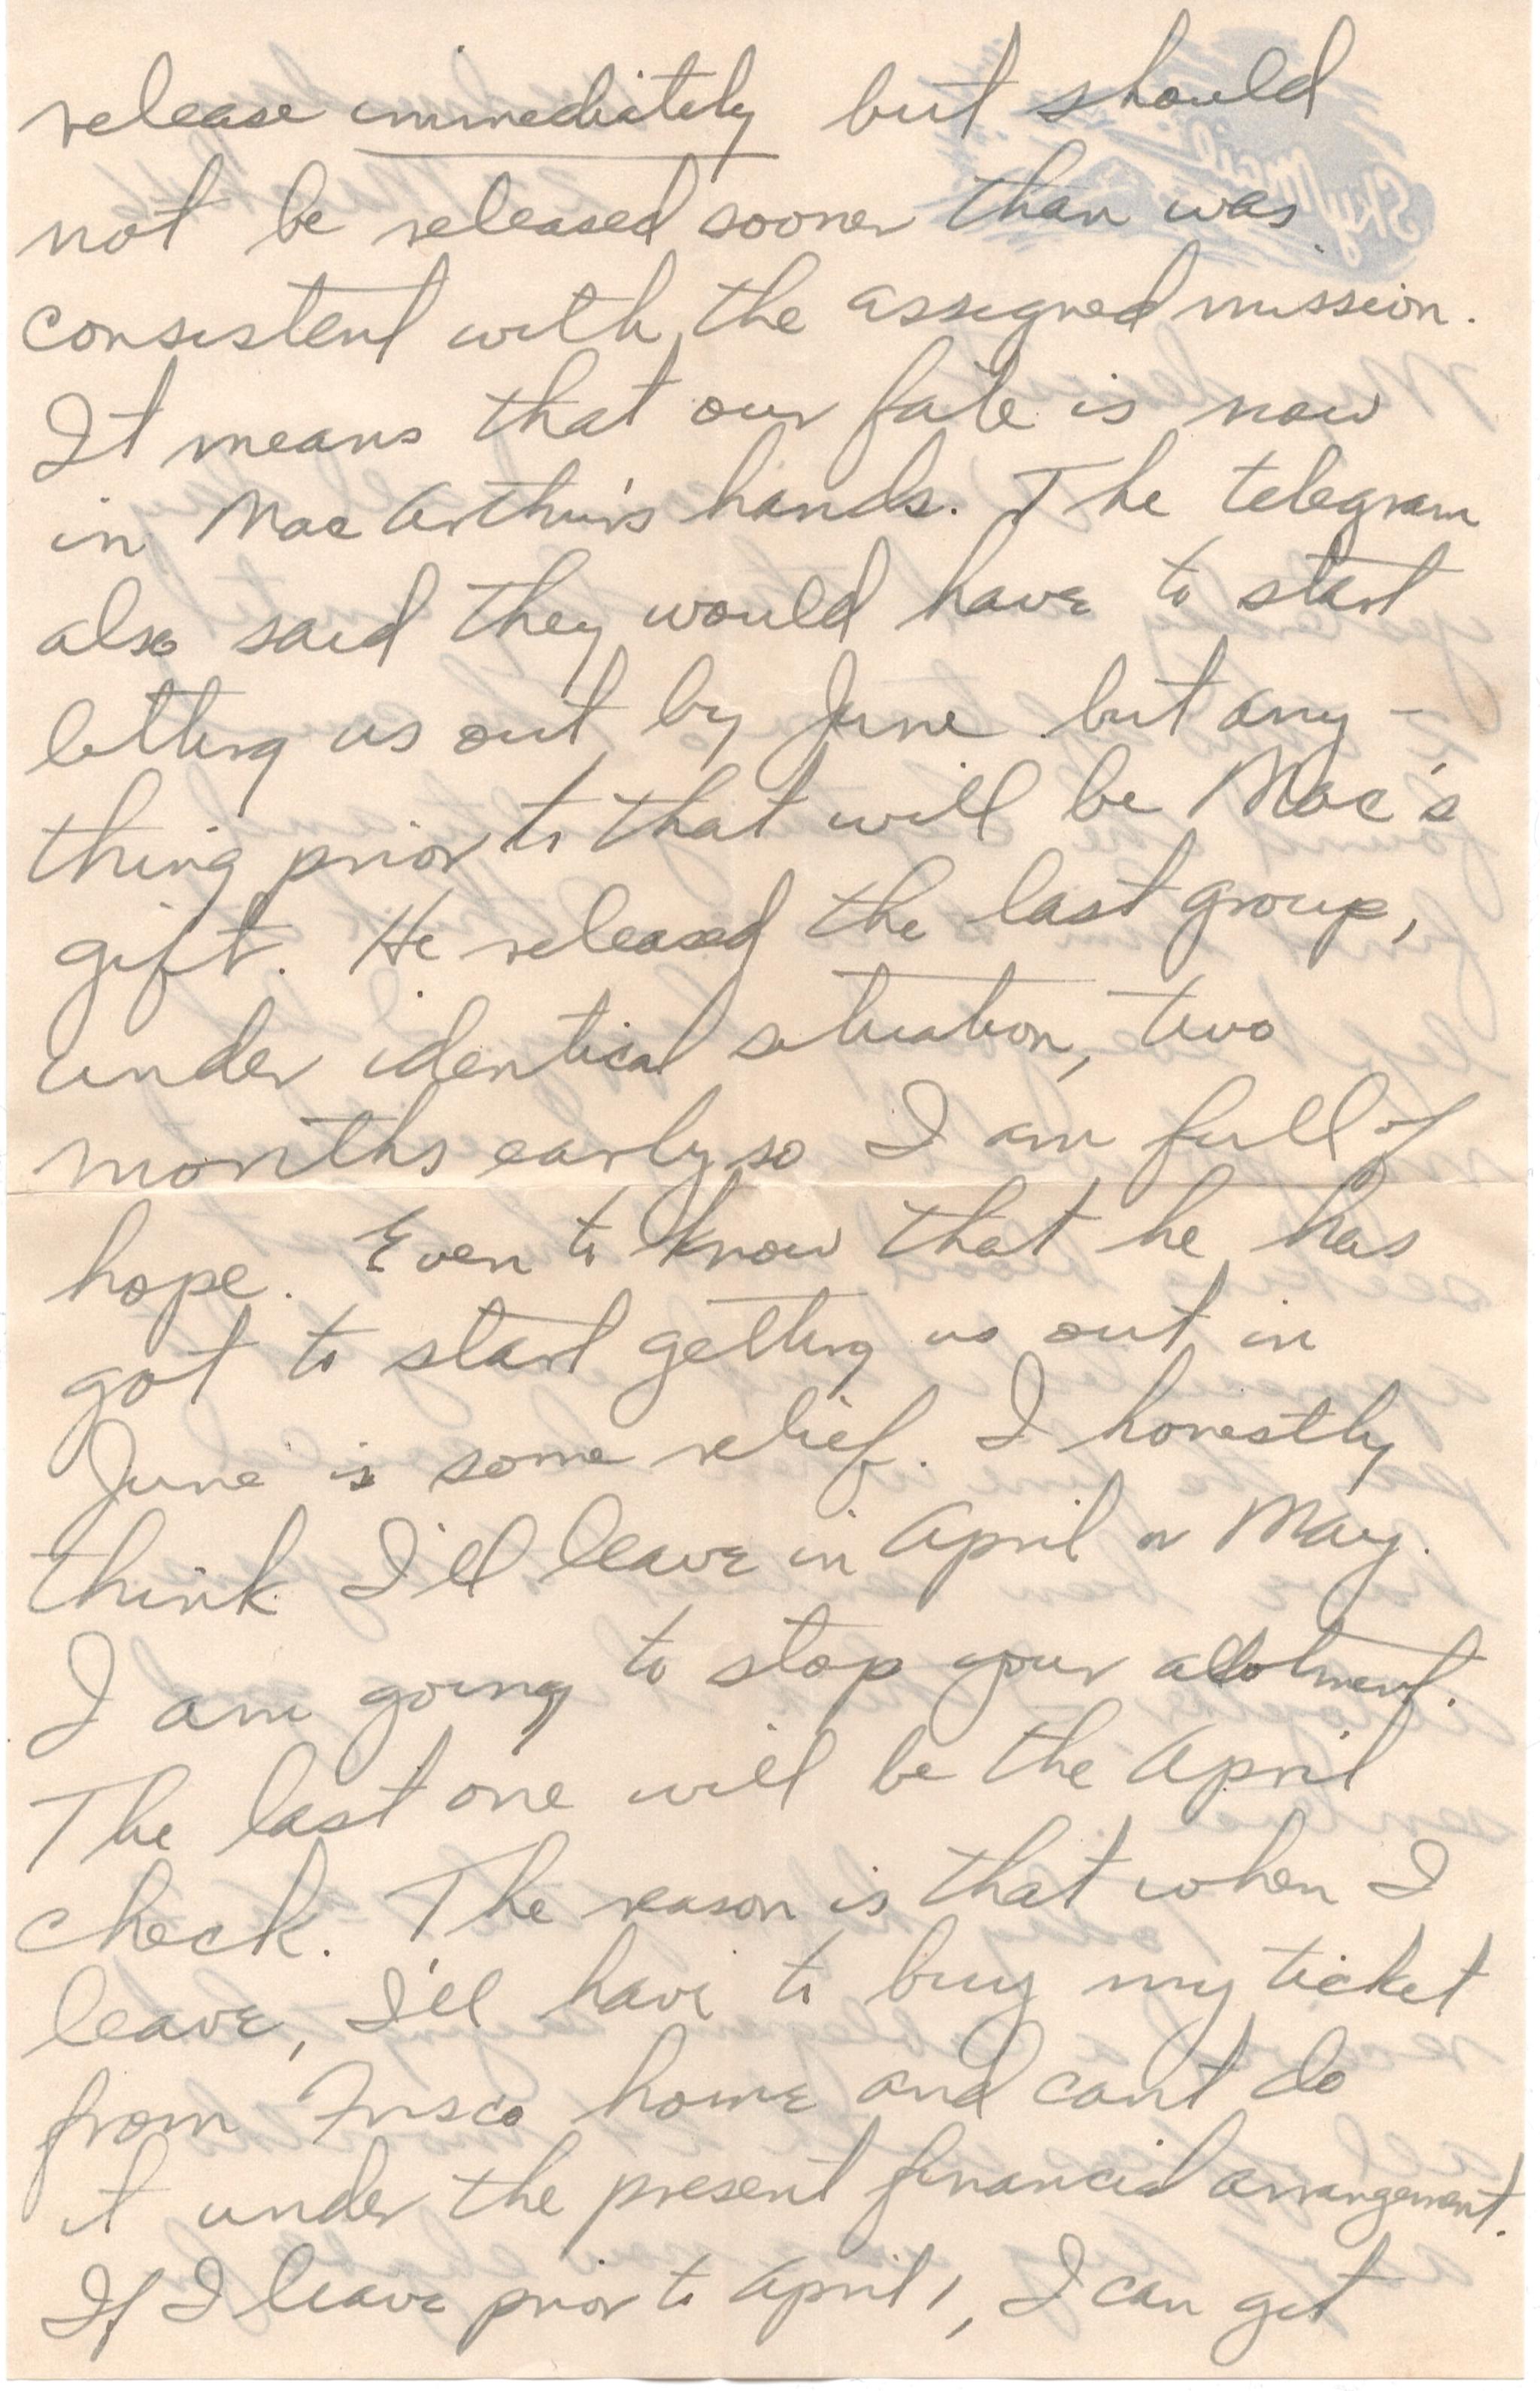 release immediately but should
not be released sooner than was
consistent with the assigned mission.
It means that our fate is now
in MacArthur's hands. The telegram
also said they would have to start
letting us out by June but any-
thing prior to that will be Mac's
gift. He released the last group,
under identical situation, two
months early so I am full of
hope. Even to know that he has
got to start getting us out in
June is some relief. I honestly
think I'll leave in April or May.
I am going to stop your allotment.
The last one will be the April
check. The reason is that when I
leave, I'll have to buy my ticket
from Frisco home and cant do
it under the present financial arrangement.
If I leave prior to April 1, I can get
Sky Mail